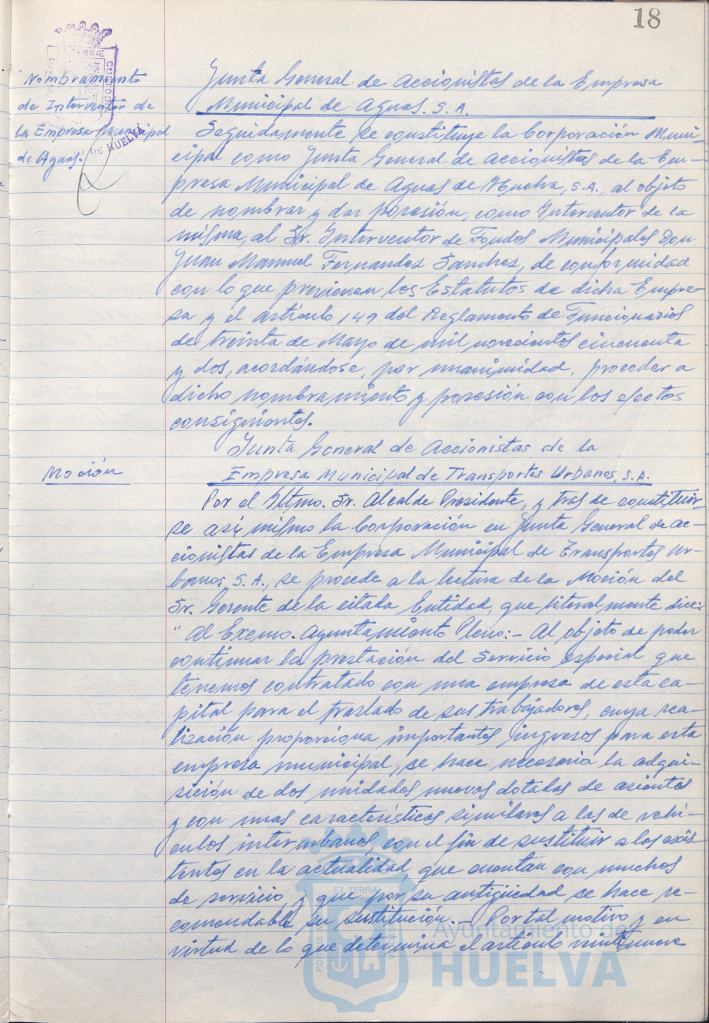 18
Nombramiento
de Interventor de
la Empresa Municipal
de Aguas.
Junta General de Accionistas de la Empresa
Municipal de Aguas. S.A.
Seguidamente se constituye la Corporación Muni-
cipal como Junta General de Accionistas de la Em-
presa Municipal de Aguas de Huelva, S.A., al objeto
de nombrar y dar posesión, como Interventor de la
misma, al Sr. Interventor de Fondos Municipales Don
Juan Manuel Fernandez Sanchez, de conformidad
con lo que previenen los Estatutos de dicha Empre-
sa y el artículo 149 del Reglamento de Funcionarios
de treinta de Mayo de mil novecientos cincuenta
y dos, acordándose, por unanimidad, proceder a
dicho nombramiento y posesión con los efectos
consiguientes.
Junta General de Accionistas de la
Moción
Empresa Municipal de Transportes Urbanos, S.A.
Por el Iltmo. Sr. Alcalde Presidente, y tras de constituir-
se asi mismo la Corporación en Junta General de Ac-
cionistas de la Empresa Municipal de Transportes Ur-
banos, S.A., se procede a la lectura de la Moción del
Sr. Gerente de la citada Entidad, que literalmente dice:
"Al Excmo. Ayuntamiento Pleno:- Al objeto de poder
continuar la prestación del Servicio especial que
tenemos contratado con una empresa de esta ca-
pital para el traslado de sus trabajadores, cuya rea-
lización proporciona importantes ingresos para esta
empresa municipal, se hace necesaria la adqui-
sición de dos unidades nuevas dotadas de asientos
y con unas características similares a las de vehí-
culos interurbanos, con el fin de sustituir a los exis-
tentes en la actualidad que cuentan con muchos
de servicio, y que por su antigüedad se hace re-
comendable su sustitución.- Por tal motivo y en
virtud de lo que determina el artículo veintinueve
DE HUELVA
Ayuntamiento de
HUELVA